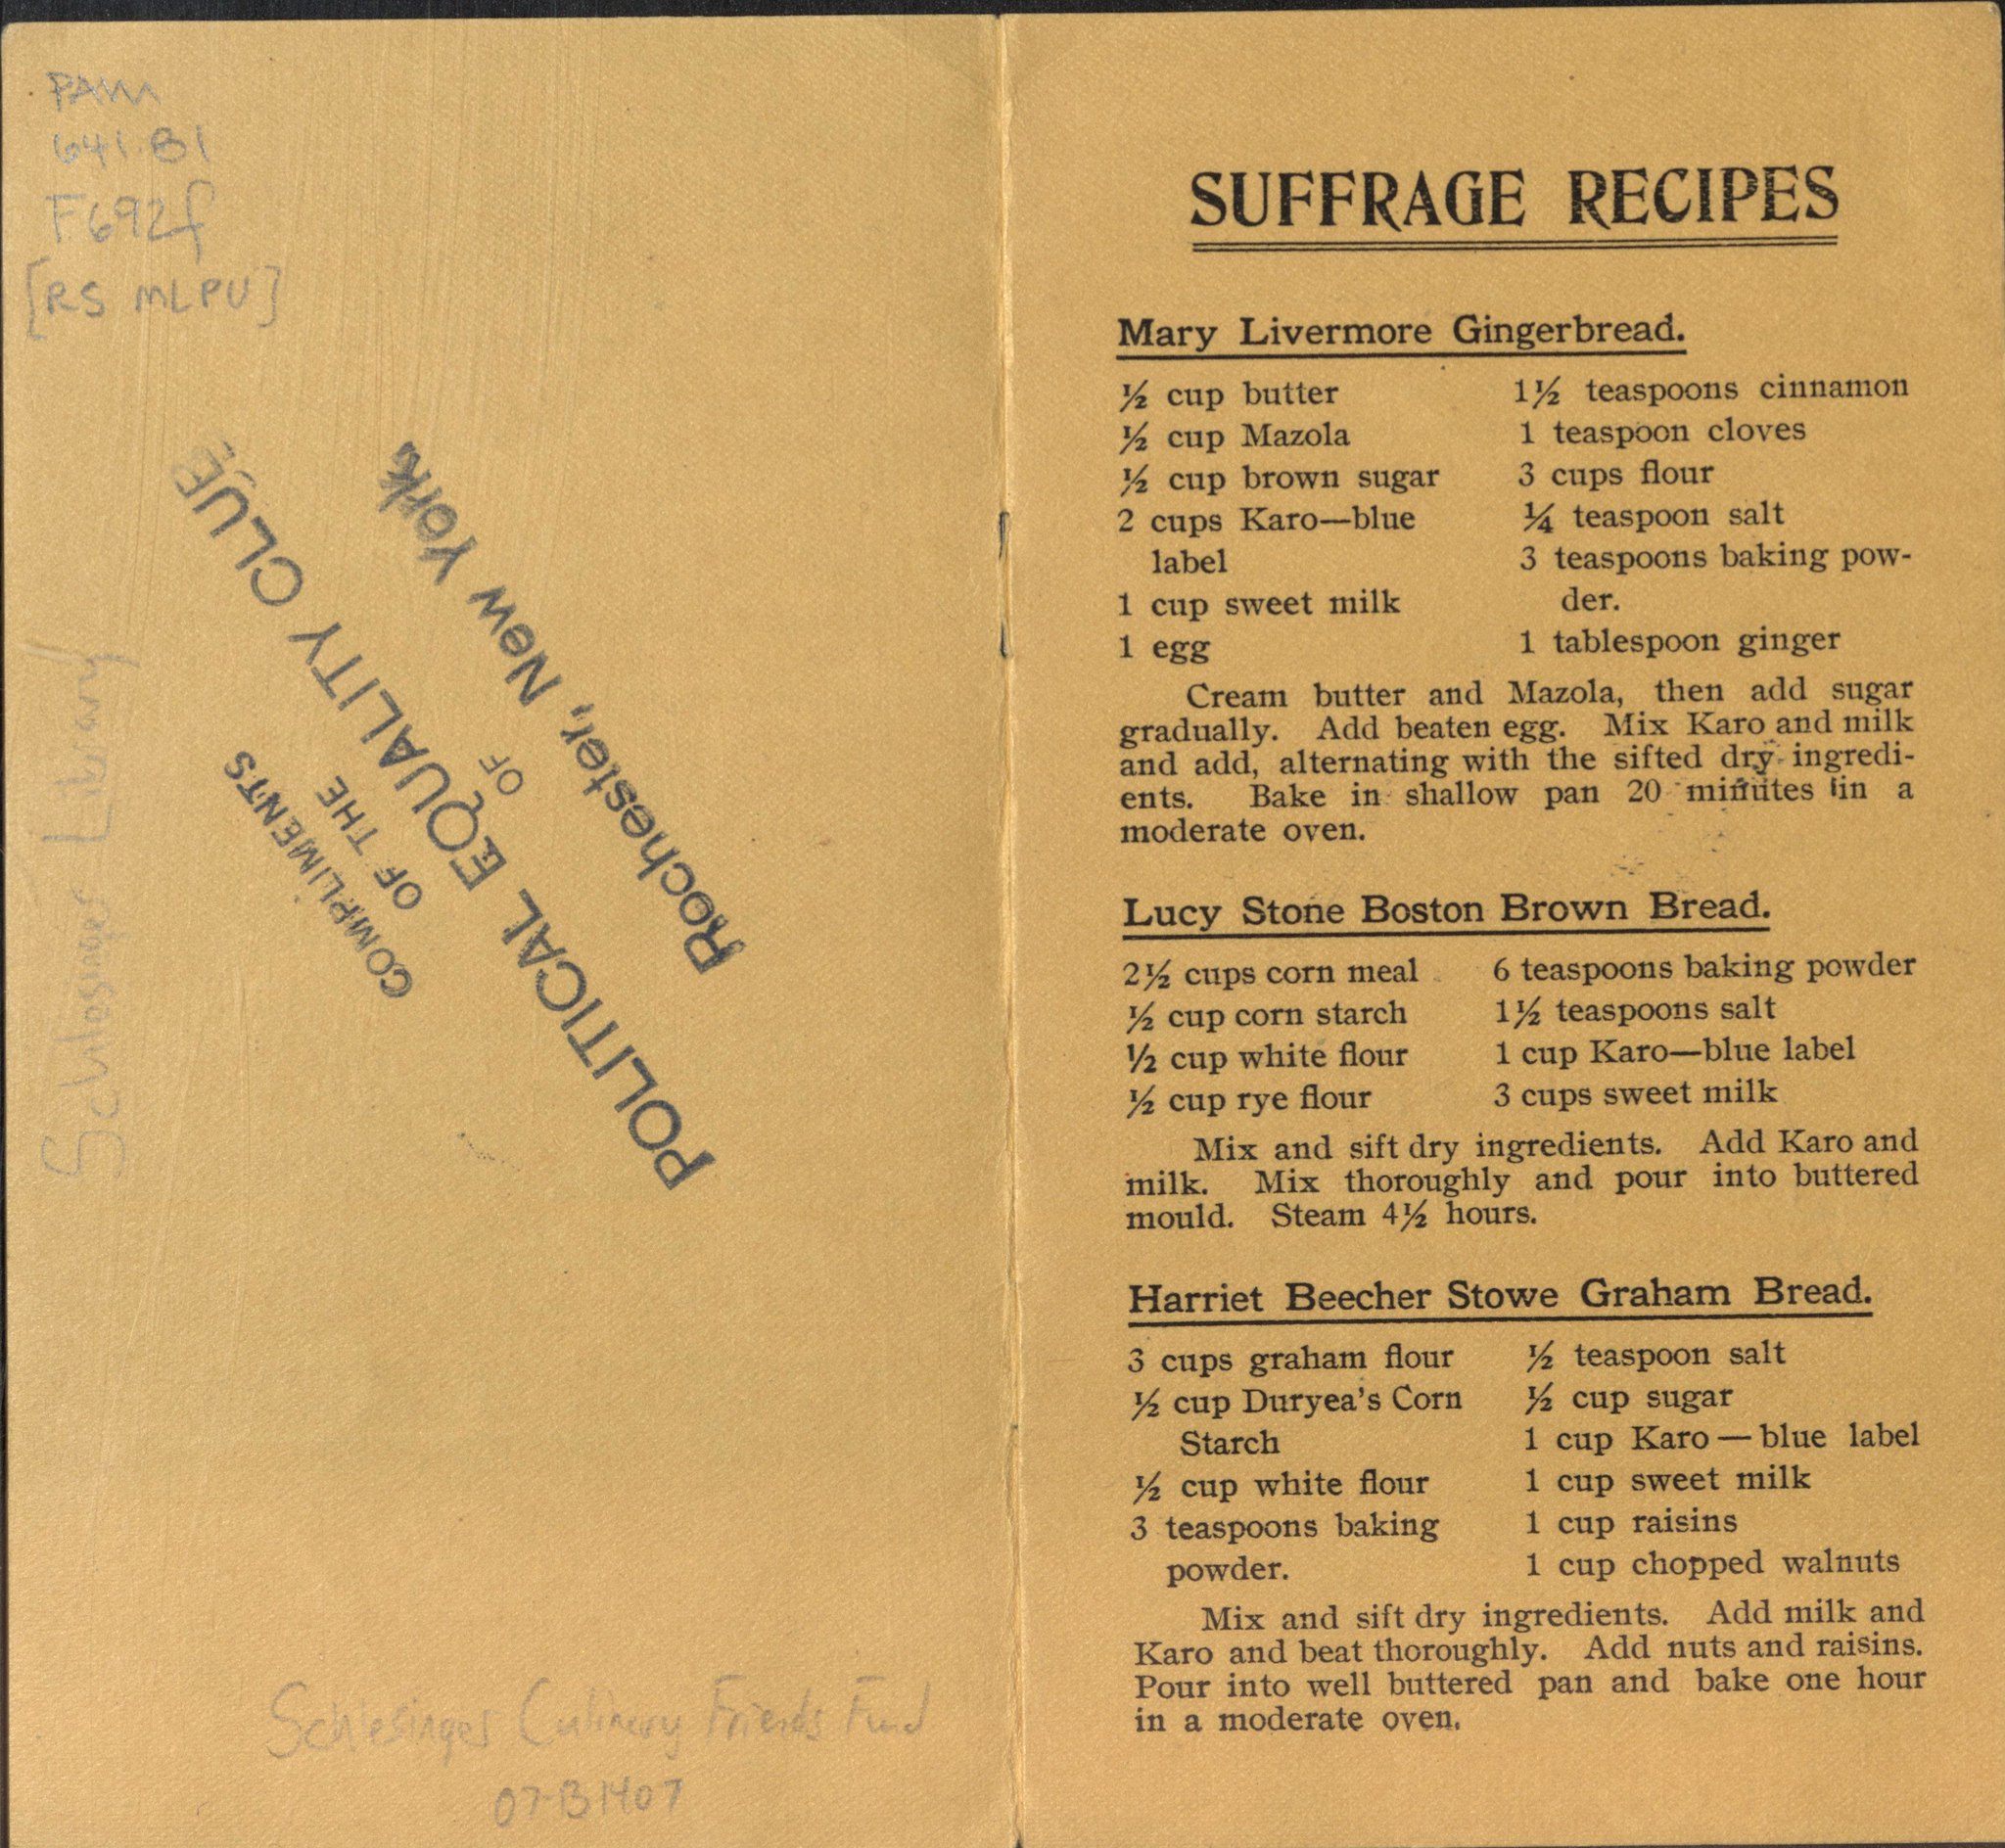 PAM
641.81
F692f
[RS MLPU]
Schlesinger Library
COMPLIMENTS
OF THE
POLITICAL EQUALITY CLUB
OF
Rochester, New York
Schlesinger Culinary Friends Fund
07-B1407
SUFFRAGE RECIPES
Mary Livermore Gingerbread.
½ cup butter
½ cup Mazola
½ cup brown sugar
2 cups Karo—blue
label
1 cup sweet milk
1 egg
1½ teaspoons cinnamon
1 teaspoon cloves
3 cups flour
¼ teaspoon salt
3 teaspoons baking pow-
der.
1 tablespoon ginger
Cream butter and Mazola, then add sugar
gradually. Add beaten egg. Mix Karo and milk
and add, alternating with the sifted dry ingredi-
ents. Bake in shallow pan 20 minutes in a
moderate oven.
Lucy Stone Boston Brown Bread.
2½ cups corn meal
½ cup corn starch
½ cup white flour
½ cup rye flour
6 teaspoons baking powder
1½ teaspoons salt
1 cup Karo—blue label
3 cups sweet milk
Mix and sift dry ingredients. Add Karo and
milk. Mix thoroughly and pour into buttered
mould. Steam 4½ hours.
Harriet Beecher Stowe Graham Bread.
3 cups graham flour
½ cup Duryea's Corn
Starch
½ cup white flour
3 teaspoons baking
powder.
½ teaspoon salt
½ cup sugar
1 cup Karo — blue label
1 cup sweet milk
1 cup raisins
1 cup chopped walnuts
Mix and sift dry ingredients. Add milk and
Karo and beat thoroughly. Add nuts and raisins.
Pour into well buttered pan and bake one hour
in a moderate oven.